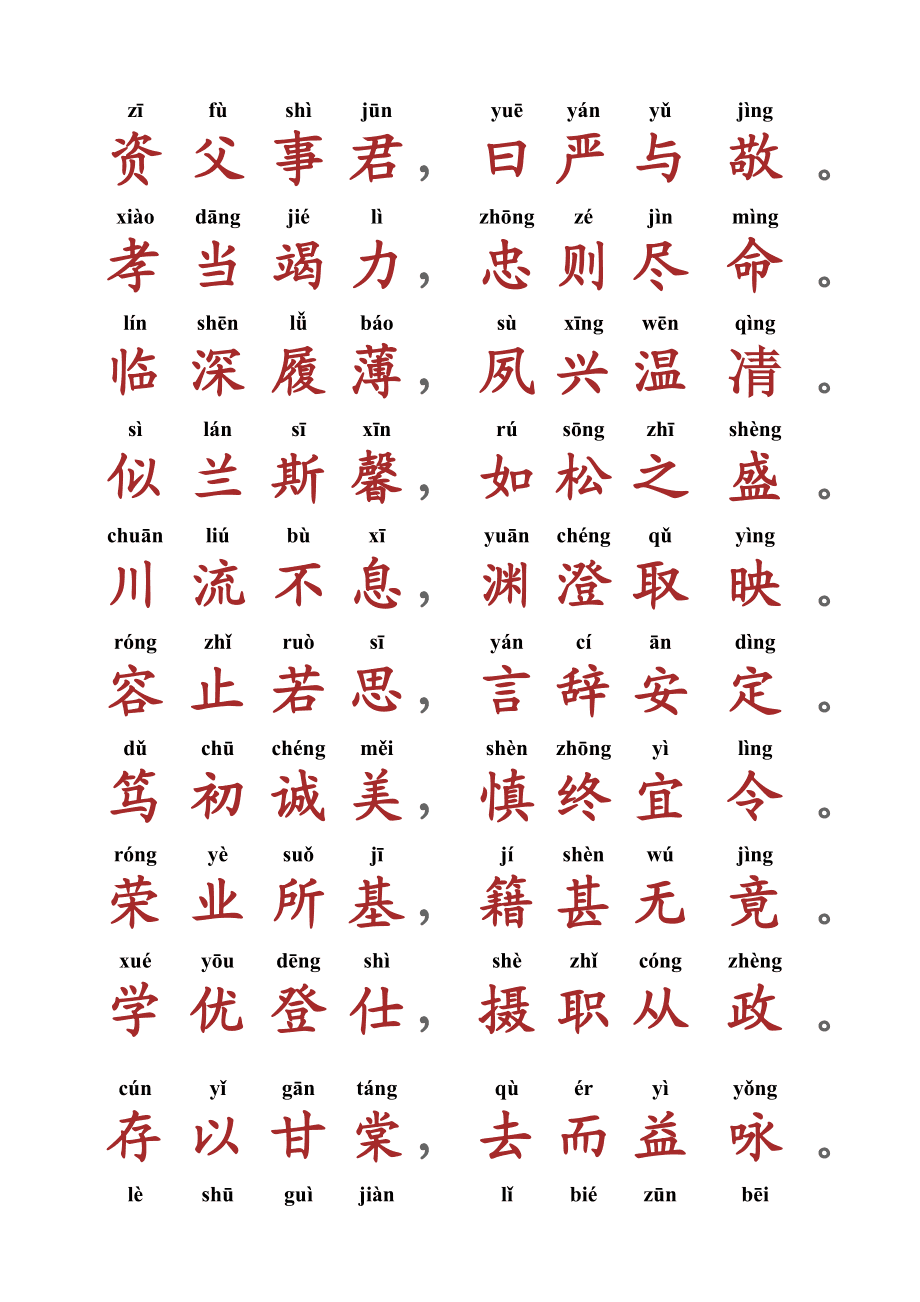 zī fù shì jūn yuē yán yǔ jìng
资父事君，曰严与敬。
xiào dāng jié lì zhōng zé jìn mìng
孝当竭力，忠则尽命。
lín shēn lǚ báo sù xīng wēn qìng
临深履薄，夙兴温凊。
sì lán sī xīn rú sōng zhī shèng
似兰斯馨，如松之盛。
chuān liú bù xī yuān chéng qǔ yìng
川流不息，渊澄取映。
róng zhǐ ruò sī yán cí ān dìng
容止若思，言辞安定。
dǔ chū chéng měi shèn zhōng yì lìng
笃初诚美，慎终宜令。
róng yè suǒ jī jí shèn wú jìng
荣业所基，籍甚无竟。
xué yōu dēng shì shè zhǐ cóng zhèng
学优登仕，摄职从政。
cún yǐ gān táng qù ér yì yǒng
存以甘棠，去而益咏。
lè shū guì jiàn lǐ bié zūn bēi